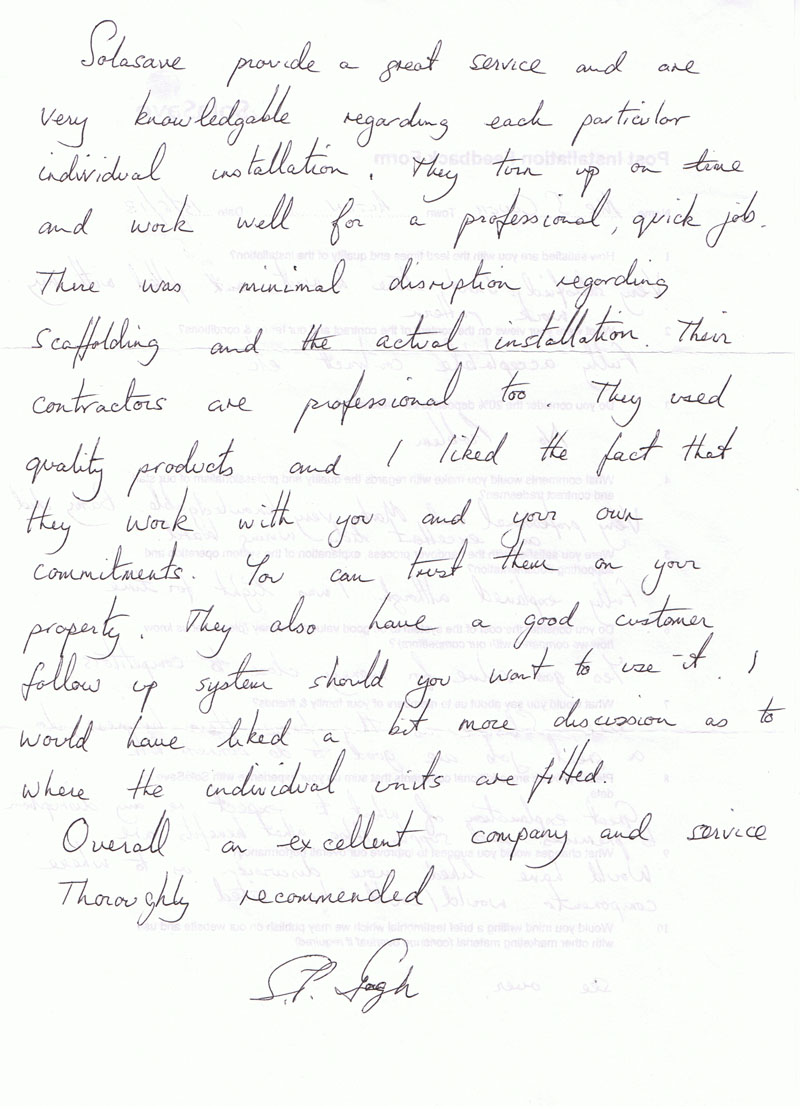 Solasave provide a great service and are
very knowledgable regarding each particular
individual installation. They turn up on time
and work well for a professional, quick job.
There was minimal disruption regarding
scaffolding and the actual installation. Their
contractors are professional too. They used
quality products and I liked the fact that
they work with you and your own
commitments. You can trust them on your
property. They also have a good customer
follow up system should you want to use it. I
would have liked a bit more discussion as to
where the individual units are fitted.
Overall an excellent company and service
Thoroughly recommended
S.P.